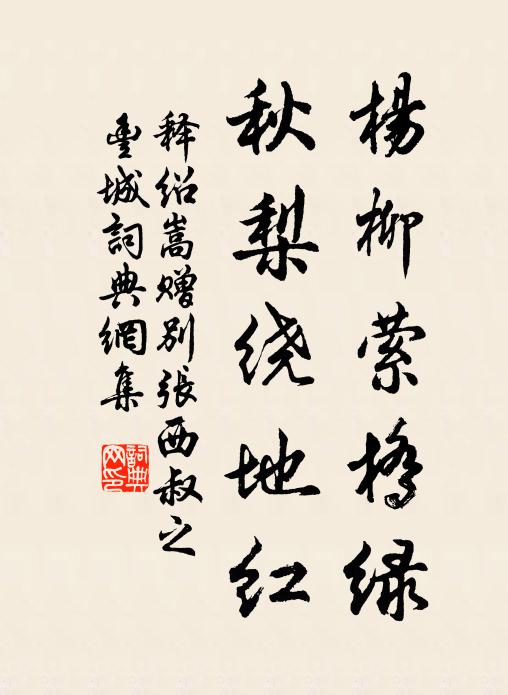 楊柳萦橋绿
秋梨绕地红
释绍嵩赠别張西叔之
曹城詞典網集
詞典网印